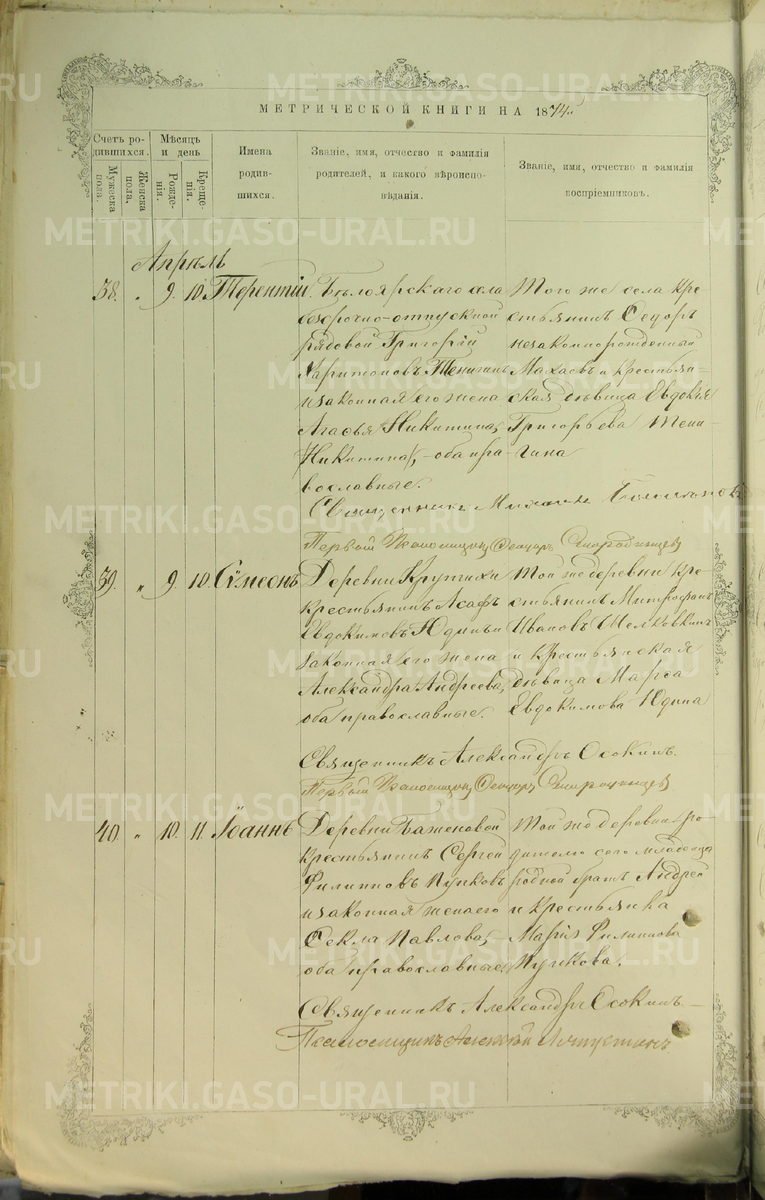 МЕТРИЧЕСКОЙ КНИГИ НА 1874
Счетъ родившихся.
Мужеска пола.
Женска пола.
Мѣсяцъ и день
Рожденія.
Крещенія.
Имена родившихся.
Званіе, имя, отчество и фамилія родителей, и какого вѣроисповѣданія.
Званіе, имя, отчество и фамилія воспріемниковъ.
Апрѣль
38. „ 9. 10. Терентій.
Бѣлоярскаго села
безсрочно-отпускной
рядовой Григорій
Харитоновъ Тенигинъ
и законная его жена
Агафья Никитина,
Никитина, - оба православные.
Того же села крестьянинъ Ѳедоръ
незаконнорожденный
и крестьянская дѣвица Евдокія
Григорьева Тенигина
Священникъ Михаилъ
Первый Псаломщикъ Ѳедоръ
39. „ 9. 10. Сѵмеонъ
Деревни Крутихи
крестьянинъ Асафъ
Евдокимовъ Юдинъ и
законная его жена
Александра Андреева,
оба православные.
Той же деревни крестьянинъ Митрофанъ
Ивановъ Шелковкинъ
и крестьянская
дѣвица Марѳа
Евдокимова Юдина
Священникъ Александръ Осокинъ.
Первый Псаломщикъ Ѳедоръ
40. „ 10. 11. Іоаннъ
Деревни Баженовой
крестьянинъ Сергей
Филипповъ Пупковъ
и законная жена его
Ѳекла Павлова,
оба православные
Той же деревни родителю сего младенца
родной братъ Андрей
и крестьянка
Марія Филиппова
Пупкова.
Священникъ Александръ Осокинъ
Псаломщикъ Алексѣй
METRIKI.GASO-URAL.RU